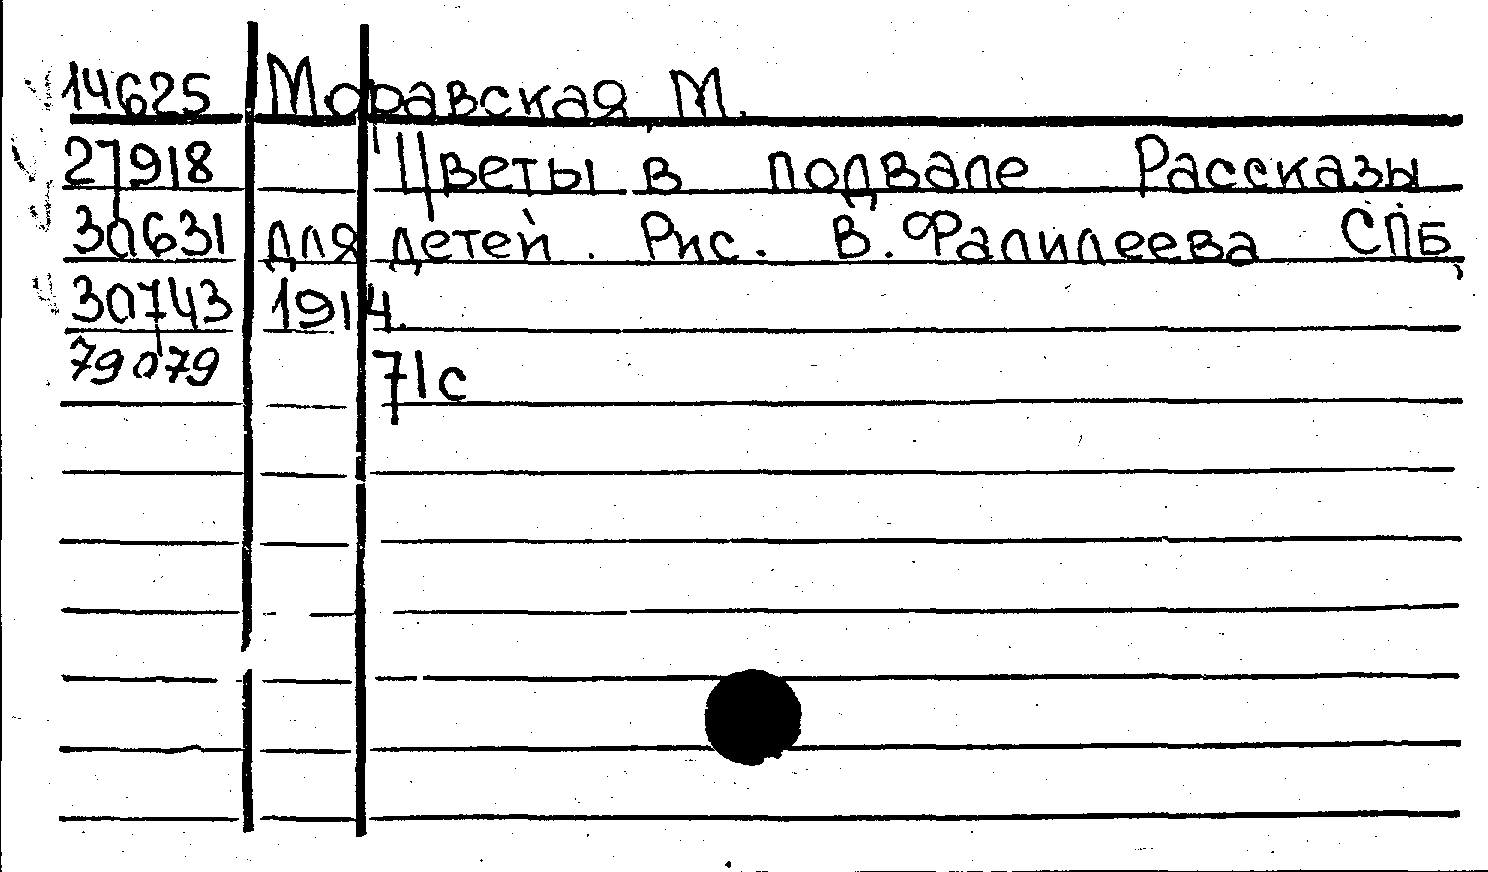 14625 Моравская, М.
27918 Цветы в подвале Рассказы
30631 для детей. Рис. В. Фалилеева СПБ,
30743 1914.
79079 71с